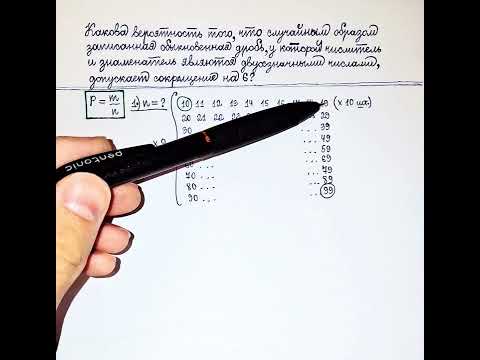 Какова вероятность того, что случайным образом
записанная обыкновенная дробь, у которой числитель
и знаменатель являются двузначными числами,
допускает сокращение на 6?
P = m/n 1) n = ? 10 11 12 13 14 15 16 19 (x 10 шт.)
20 21 22 29
30 39
x 9 49
59
60 ... 69
70 ... 79
80 ... 89
90 ... 99
pentonic